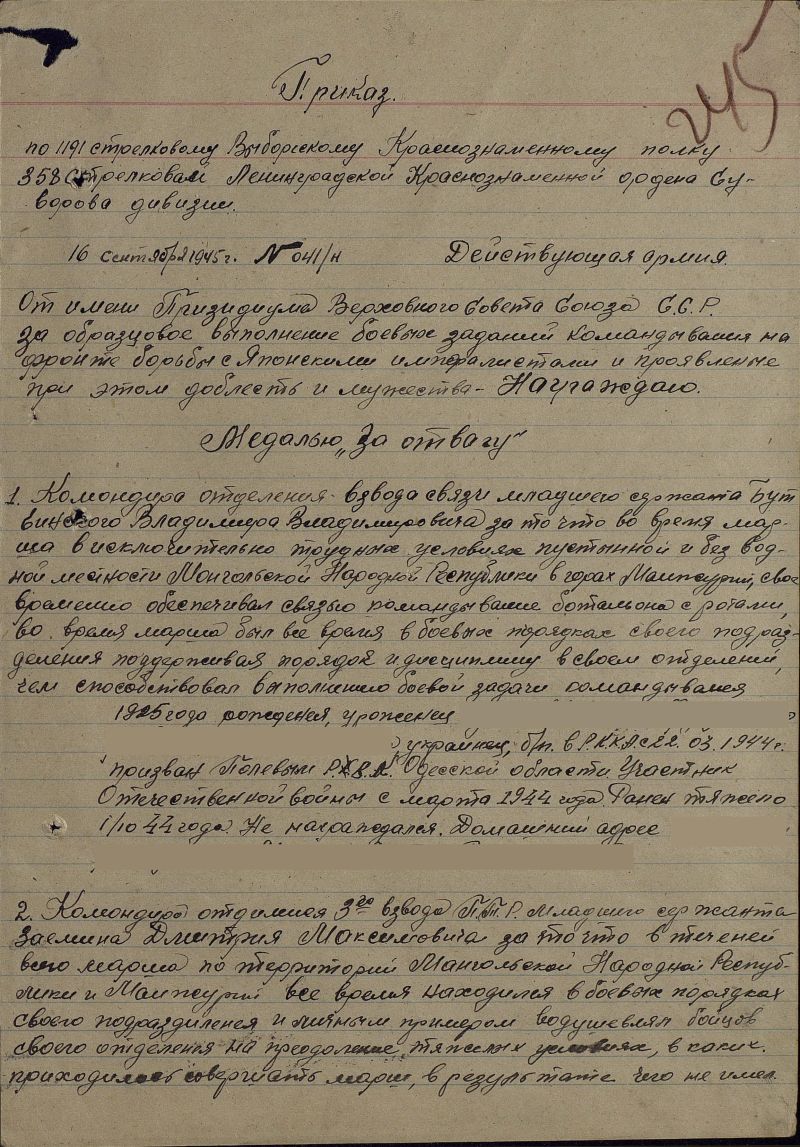 245
Приказ.
по 1191 стрелковому Выборгскому Краснознаменному полку
358 Стрелковай Ленинградской Краснознаменной ордена Су-
ворова дивизии.
16 сентября 1945г. № 041/н Действующая армия.
От имени Призидиума Верховного Совета Союза С.С.Р.
за образцовое выполнение боевых заданий командывания на
фронте борьбы с Японскими импералистами и проявленые
при этом доблесть и мужества - Награждаю.
Медалью „За отвагу"
1. Командира отделения взвода связи младшего сержанта Бут
винского Владимира Владимировича за то что во время мар-
ша в исключительно трудных условиях пустынной и без вод-
ной местности Монгольской Народной Республики в горах Манжурии, свое
временно обеспечивал связью командывание батальона с ротами,
во время марша был все время в боевых порядках своего подраз-
деления поддерживая порядок и дисциплину в своем отделений,
чем способствовал выполнению боевой задачи командывания
1925 года рождения, урожения
украинец, б/п. в Р.К.К.А. с 22.03.1944г.
призван Полевым Р.В.К. Одесской области. Участник
Отечественной войны с марта 1944 года. Ранен тяжело
1/10 44 года. Не награждался. Домашний адрес
2. Командира отдиления 3го взвода П.Т.Р. младшего сержанта
Заемина Дмитрия Максимовича за то что в течений
всего марша по территорий Мангольской Народной Респуб-
лики и Манжурий все время находился в боевых порядках
своего подразделения и личным примером водушевлял бойцов
своего отделения на преодоление тяжелых условиях, в каких
приходилось совершать марш, в результате чего не имел